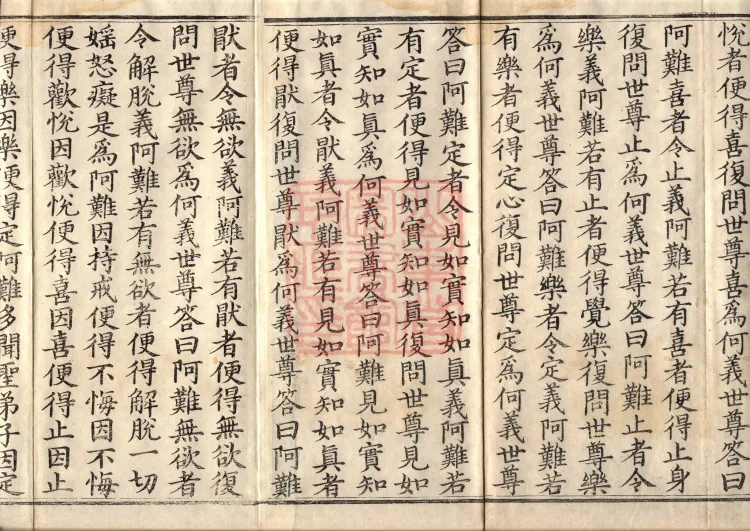 悅者便得喜復問世尊喜爲何義世尊答曰
阿難喜者令止義阿難若有喜者便得止身
復問世尊止爲何義世尊答曰阿難止者令
樂義阿難若有止者便得覺樂復問世尊樂
爲何義世尊答曰阿難樂者令定義阿難若
有樂者便得定心復問世尊定爲何義世尊
答曰阿難定者令見如實知如眞義阿難若
有定者便得見如實知如眞復問世尊見如
實知如眞爲何義世尊答曰阿難見如實知
如眞者令猒義阿難若有見如實知如眞者
便得猒復問世尊猒爲何義世尊答曰阿難
猒者令無欲義阿難若有猒者便得無欲復
問世尊無欲爲何義世尊答曰阿難無欲者
令解脫義阿難若有無欲者便得解脫一切
婬怒癡是爲阿難因持戒便得不悔因不悔
便得歡悅因歡悅便得喜因喜便得止因止
便得樂因樂便得定阿難多聞聖弟子因定